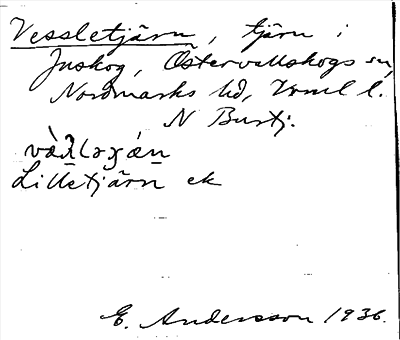 Vessletjärn, tjärn i
Juskog, Östervallskogs sn,
Nordmarks hd, Vrml l.
N Burtj.
Lilletjärn ek
E. Andersson 1936.